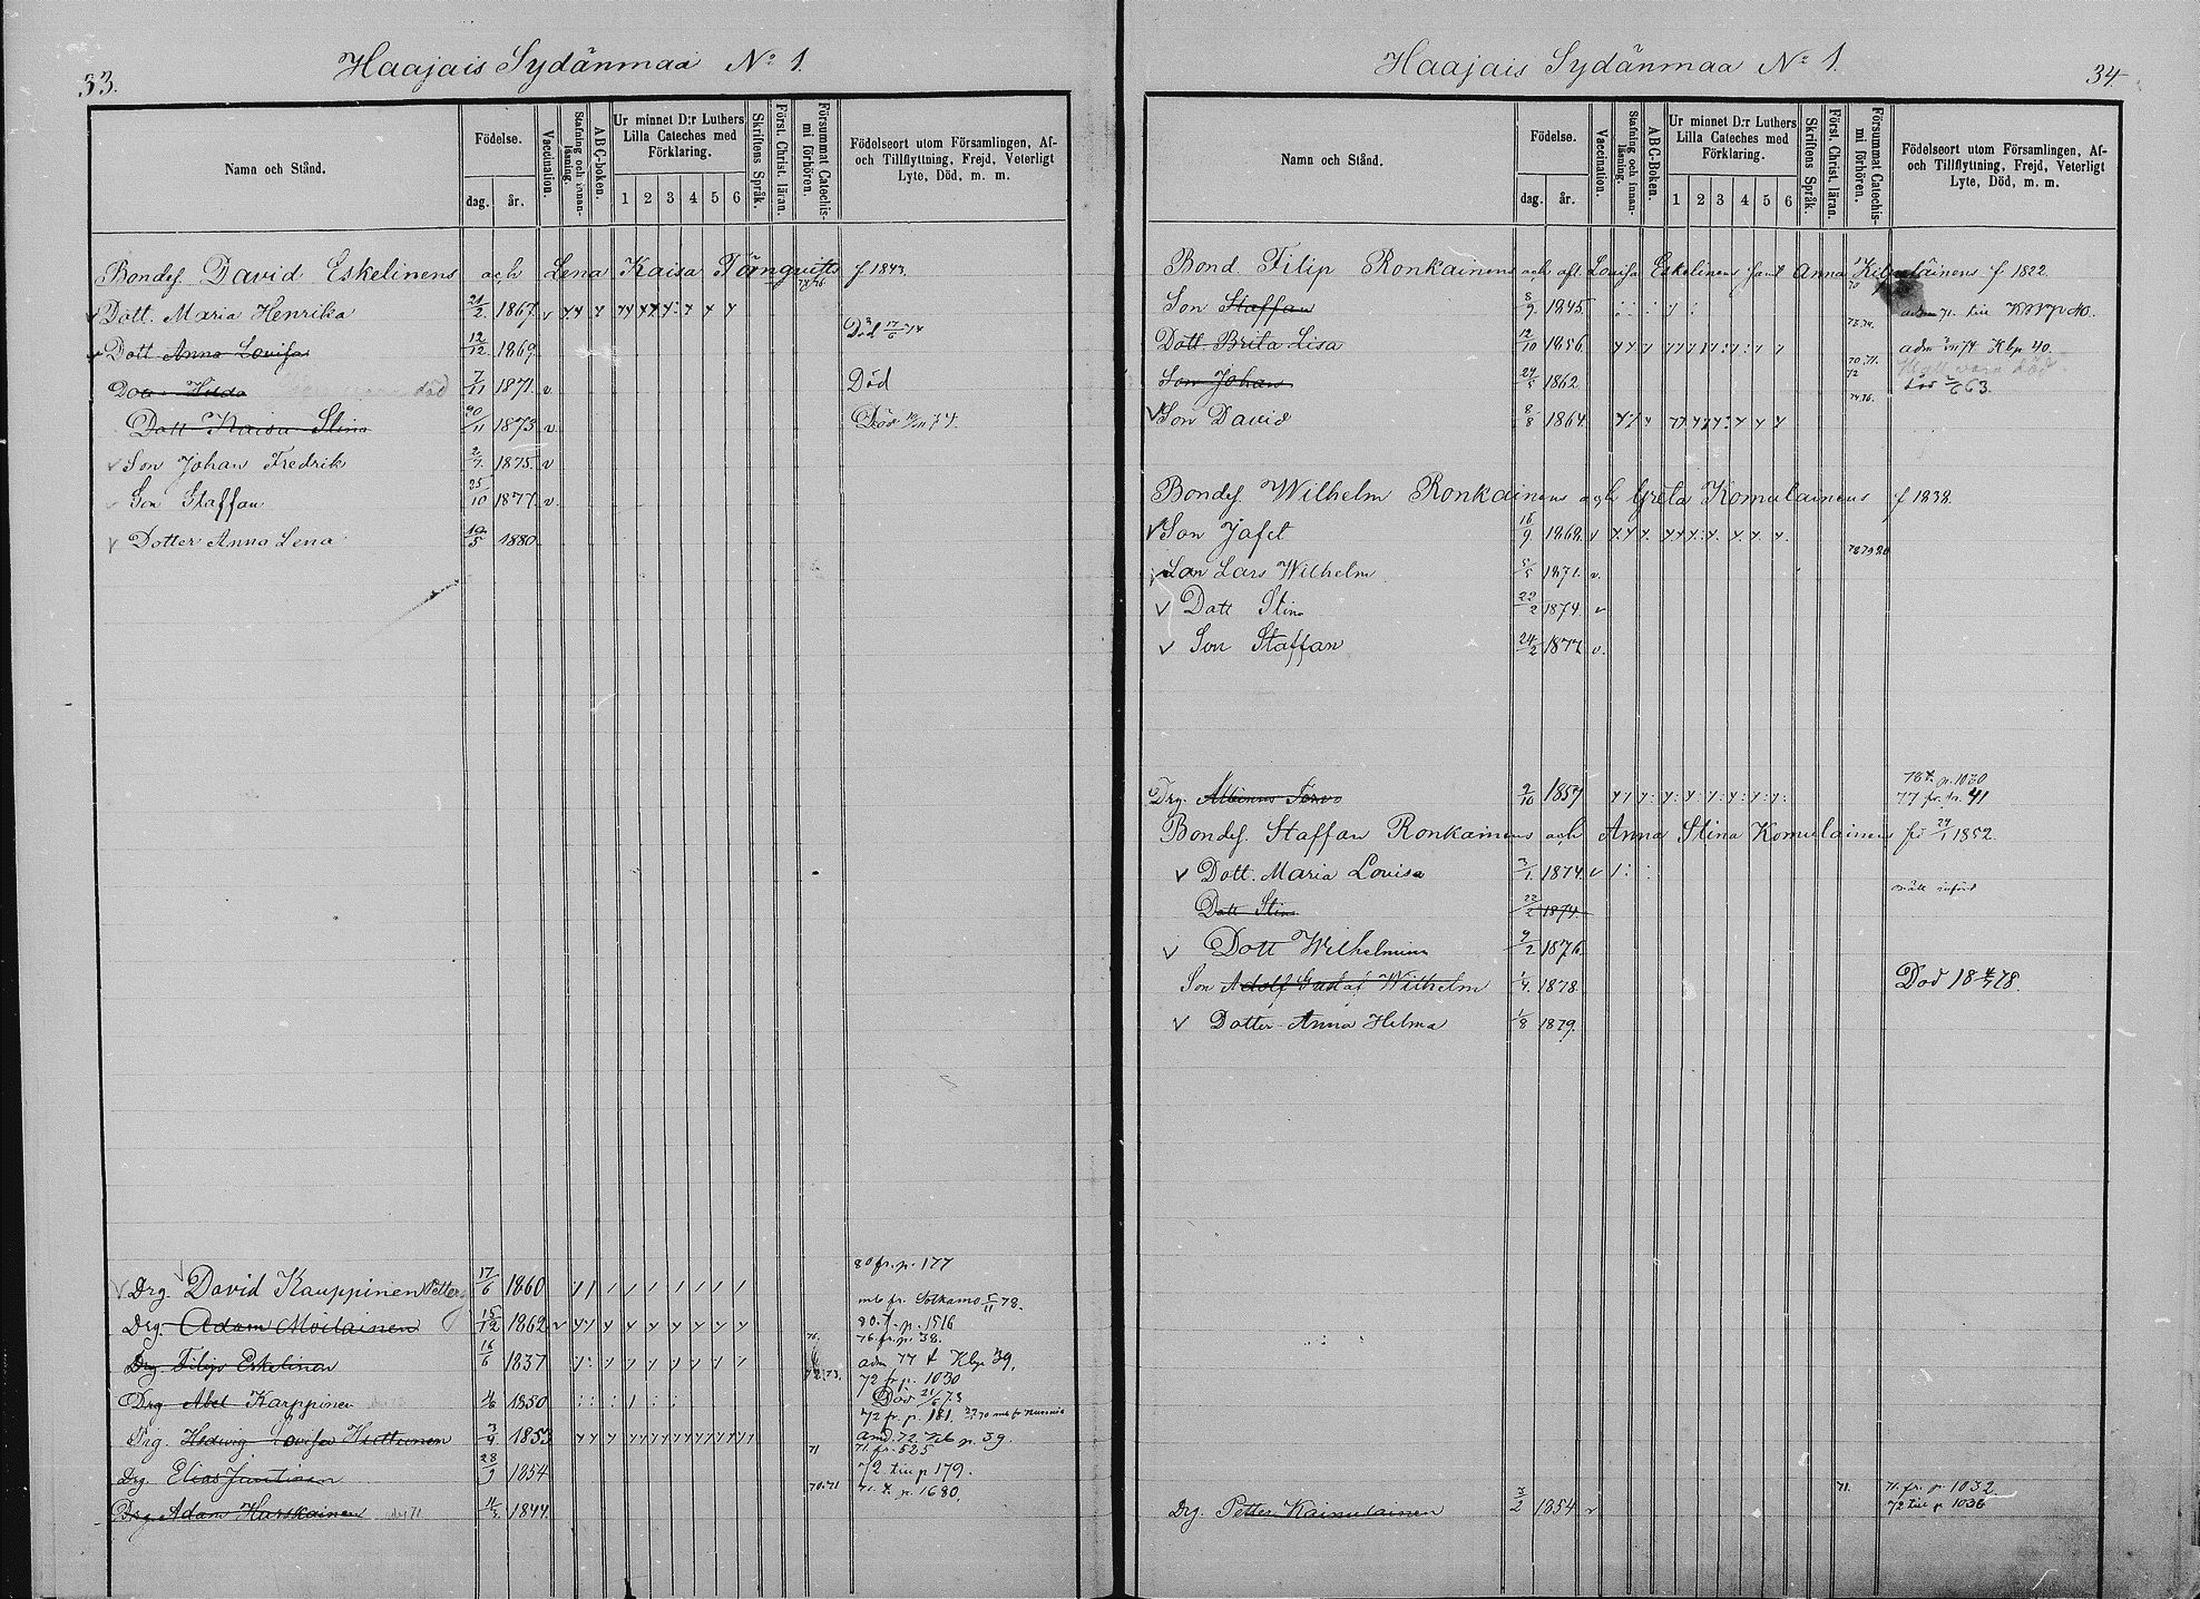 33.
Haajais Sydänmaa No 1.
Namn och Stånd.
Födelse.
dag. år.
Vaccination.
Stafning och innan-läsning.
ABC-boken.
Ur minnet D:r Luthers Lilla Cateches med Förklaring.
1 2 3 4 5 6
Skriftens Språk.
Först. Christ. läran.
Försummat Catechismi förhören.
Födelseort utom Församlingen, Af- och Tillflyttning, Frejd, Veterligt Lyte, Död, m. m.
Bondes. David Eskelinens och Lena Kaisa Törnqvists f 1843.
Dott. Maria Henrika 21/2 1867 v
Dott Anna Lovisa 12/12 1869
Hilda död 7/11 1871 v Död
Dott Kaisa Stina 1873 v
Son Johan Fredrik 2/7 1875 v
Son Staffan 25/10 1877 v.
Dotter Anna Lena 1880
80 fr. p. 177
Drg. David Kauppinen Petter 17/6 1860
fr. Sotkamo 5/11 78.
Drg. Adam Moilainen 15/12 1862 v 80 t. p. 1516
76. 76. fr. p. 38.
Drg. Filip Eskelinen 16/6 1837 adm 77 t Klp 39.
72 73. 72 fr p. 1030
Drg Abel Karppinen 4/6 1850 Död 21/6 73
72 fr. p. 181.
Prg. Hedvig Lovisa Huttunen 3/9 1853
71 71. fr. 525
Drg. Elias Juntinen 28/9 1854 72 till p 179.
70 71 71. t. p. 1680.
Drg. Adam Hurskainen 1844.
Haajais Sydänmaa No 1.
34
Namn och Stånd.
Födelse.
dag. år.
Vaccination.
Stafning och innan-läsning.
ABC-Boken.
Ur minnet D:r Luthers Lilla Cateches med Förklaring.
1 2 3 4 5 6
Skriftens Språk.
Först. Christ. läran.
Försummat Catechismi förhören.
Födelseort utom Församlingen, Af- och Tillflyttning, Frejd, Veterligt Lyte, Död, m. m.
Bond. Filip Ronkainens och afl. Lovisa Eskelinens samt Anna f 1822.
Son Staffan 8/9 1845.
Dott. Brita Lisa 12/10 1856. Klp 40.
Son Johan 1862 död 63.
Son David 8/8 1864
Bondes. Wilhelm Ronkainens och Greta Komulainens f 1838.
Son Jafet 16/9 1868. v
78 79 80
Son Lars Wilhelm 5/5 1871. v.
Dott Stina 22/2 1874. v
Son Staffan 24/2 1877 v.
78 t. p. 1030
Drg. 2/10 1857 77 fr. p. 41
Bondes. Staffan Ronkainens och Anna Stina Komulainens 1852.
Dott. Maria Lovisa 3/1 1874. v
Dott Stina 22/2 1874.
Dott Wilhelmina 9/2 1876.
Son Adolf Gustaf Wilhelm 1878 Död 78.
Dotter Anna Helma 1/8 1879.
71. 71. fr. p. 1032
Drg. Petter Kainulainen 3/2 1854 v 72 till p 1036